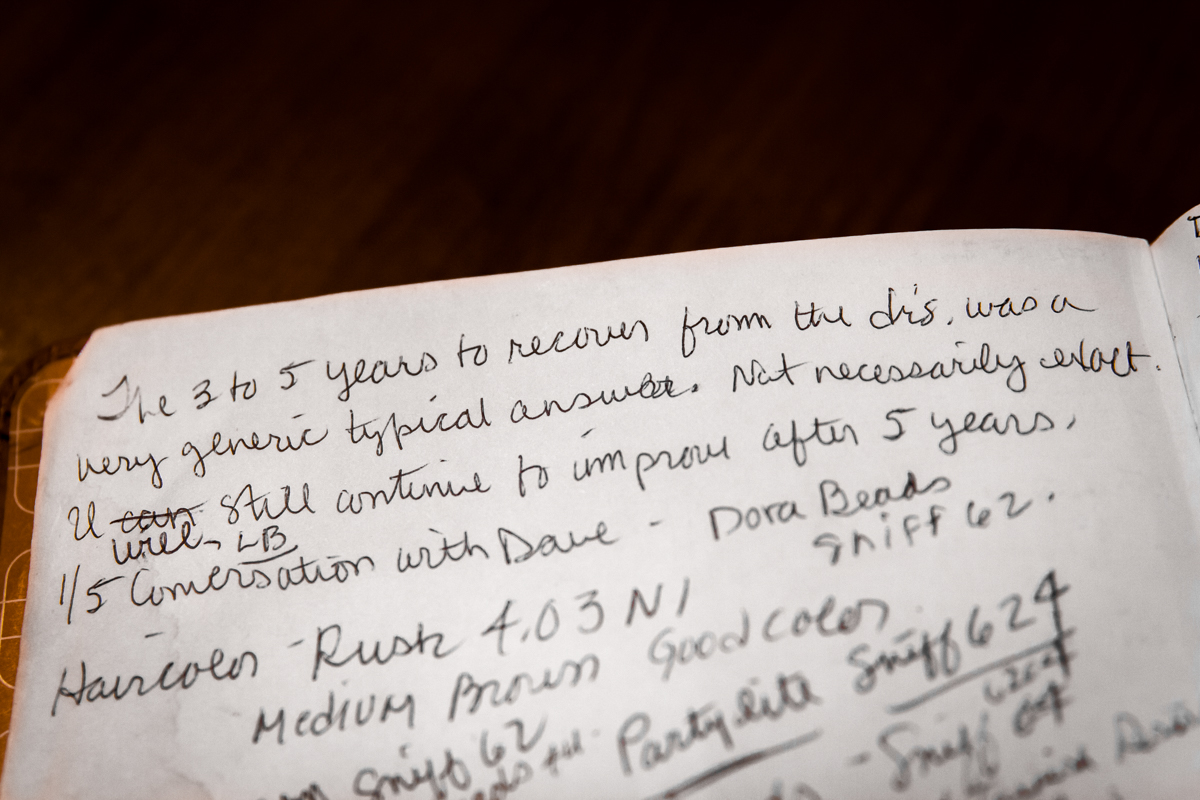 The 3 to 5 years to recover from the dr's. was a
very generic typical answer. Not necessarily exact.
U can still continue to improve after 5 years.
will LB
1/5 Conversation with Dave - Dora Beads
sniff 62.
Haircolor - Rusk 4.03 N1
Medium Brown Good color
sniff 62 Partylite Sniff 624
- Sniff